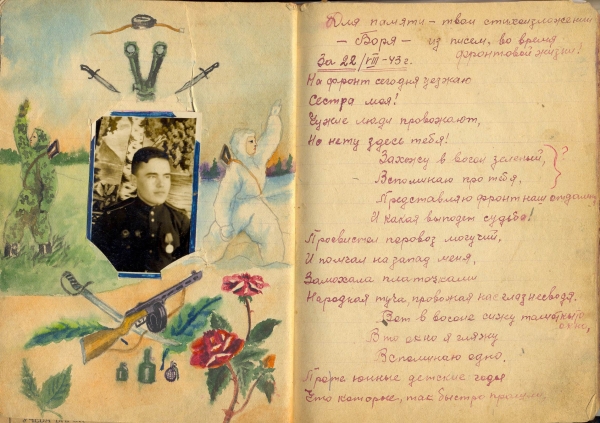 Для памяти - твои стихоизложения
- Боря - из писем, во время
фронтовой жизни!
За 22/VIII-43г.
На фронт сегодня уезжаю
Сестра моя!
Чужие люди провожают,
Но нету здесь тебя!
Захожу в вагон зеленый,
Вспоминаю про тебя,
Представляю фронт наш отдалён
И какая выпадет судьба!
Просвистел паровоз могучий,
И помчал на запад меня,
Замахала платочками
Народная туча, провожая нас глаз не сводя.
Вот в вагоне сижу
окно,
В то окно я гляжу
Вспоминаю одно,
Про те юнные детские года
Что которые, так быстро прошли